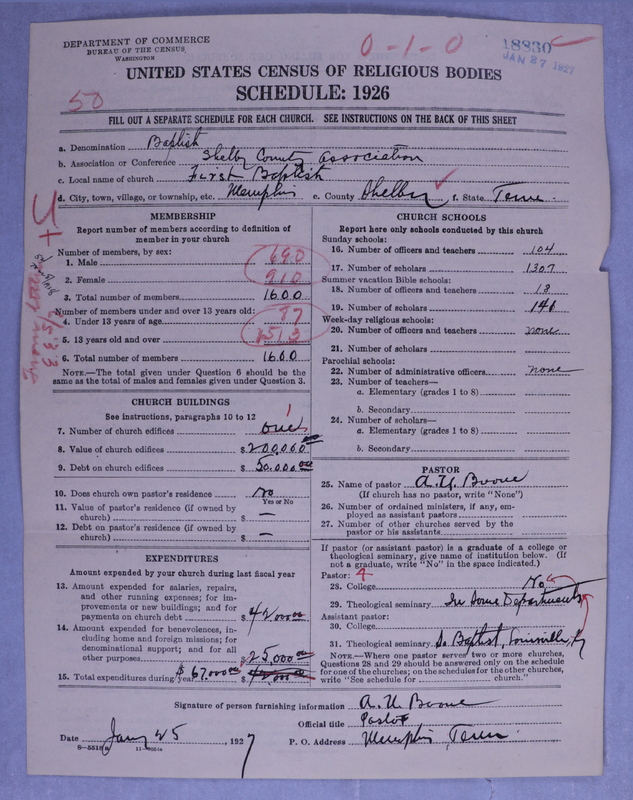 DEPARTMENT OF COMMERCE
BUREAU OF THE CENSUS
WASHINGTON
0-1-0
18830
JAN 27 1927
UNITED STATES CENSUS OF RELIGIOUS BODIES
SCHEDULE: 1926
50
FILL OUT A SEPARATE SCHEDULE FOR EACH CHURCH. SEE INSTRUCTIONS ON THE BACK OF THIS SHEET
a. Denomination Baptist
b. Association or Conference Shelby County Association
c. Local name of church First Baptist
d. City, town, village, or township, etc. Memphis e. County Shelby f. State Tenn.
MEMBERSHIP
Report number of members according to definition of
member in your church
Number of members, by sex:
1. Male 690
2. Female 910
3. Total number of members 1600
Number of members under and over 13 years old:
4. Under 13 years of age 87
5. 13 years old and over 1513
6. Total number of members 1600
NOTE.—The total given under Question 6 should be
the same as the total of males and females given under Question 3.
CHURCH BUILDINGS
See instructions, paragraphs 10 to 12
1
7. Number of church edifices one
8. Value of church edifices $200,000 00
9. Debt on church edifices $50,000 00
10. Does church own pastor's residence No
Yes or No
11. Value of pastor's residence (if owned by
church) $ —
12. Debt on pastor's residence (if owned by
church) $ —
EXPENDITURES
Amount expended by your church during last fiscal year
13. Amount expended for salaries, repairs,
and other running expenses; for im-
provements or new buildings; and for
payments on church debt $42,000 00
14. Amount expended for benevolences, in-
cluding home and foreign missions; for
denominational support; and for all
other purposes $25,000 00
15. Total expenditures during year $67,000 00
CHURCH SCHOOLS
Report here only schools conducted by this church
Sunday schools:
16. Number of officers and teachers 104
17. Number of scholars 1307
Summer vacation Bible schools:
18. Number of officers and teachers 18
19. Number of scholars 146
Week-day religious schools:
20. Number of officers and teachers none
21. Number of scholars
Parochial schools:
22. Number of administrative officers none
23. Number of teachers—
a. Elementary (grades 1 to 8)
b. Secondary
24. Number of scholars—
a. Elementary (grades 1 to 8)
b. Secondary
PASTOR
25. Name of pastor A. U. Boone
(If church has no pastor, write "None")
26. Number of ordained ministers, if any, em-
ployed as assistant pastors
27. Number of other churches served by the
pastor or his assistants
If pastor (or assistant pastor) is a graduate of a college or
theological seminary, give name of institution below. (If
not a graduate, write "No" in the space indicated.)
Pastor: 4
28. College No
29. Theological seminary In Some Departments
Assistant pastor:
30. College
31. Theological seminary So Baptist, Louisville, Ky
NOTE.—Where one pastor serves two or more churches,
Questions 28 and 29 should be answered only on the schedule
for one of the churches; on the schedules for the other churches,
write "See schedule for church."
Signature of person furnishing information A. U. Boone
Official title Pastor
Date Jany 25, 1927 P. O. Address Memphis, Tenn.